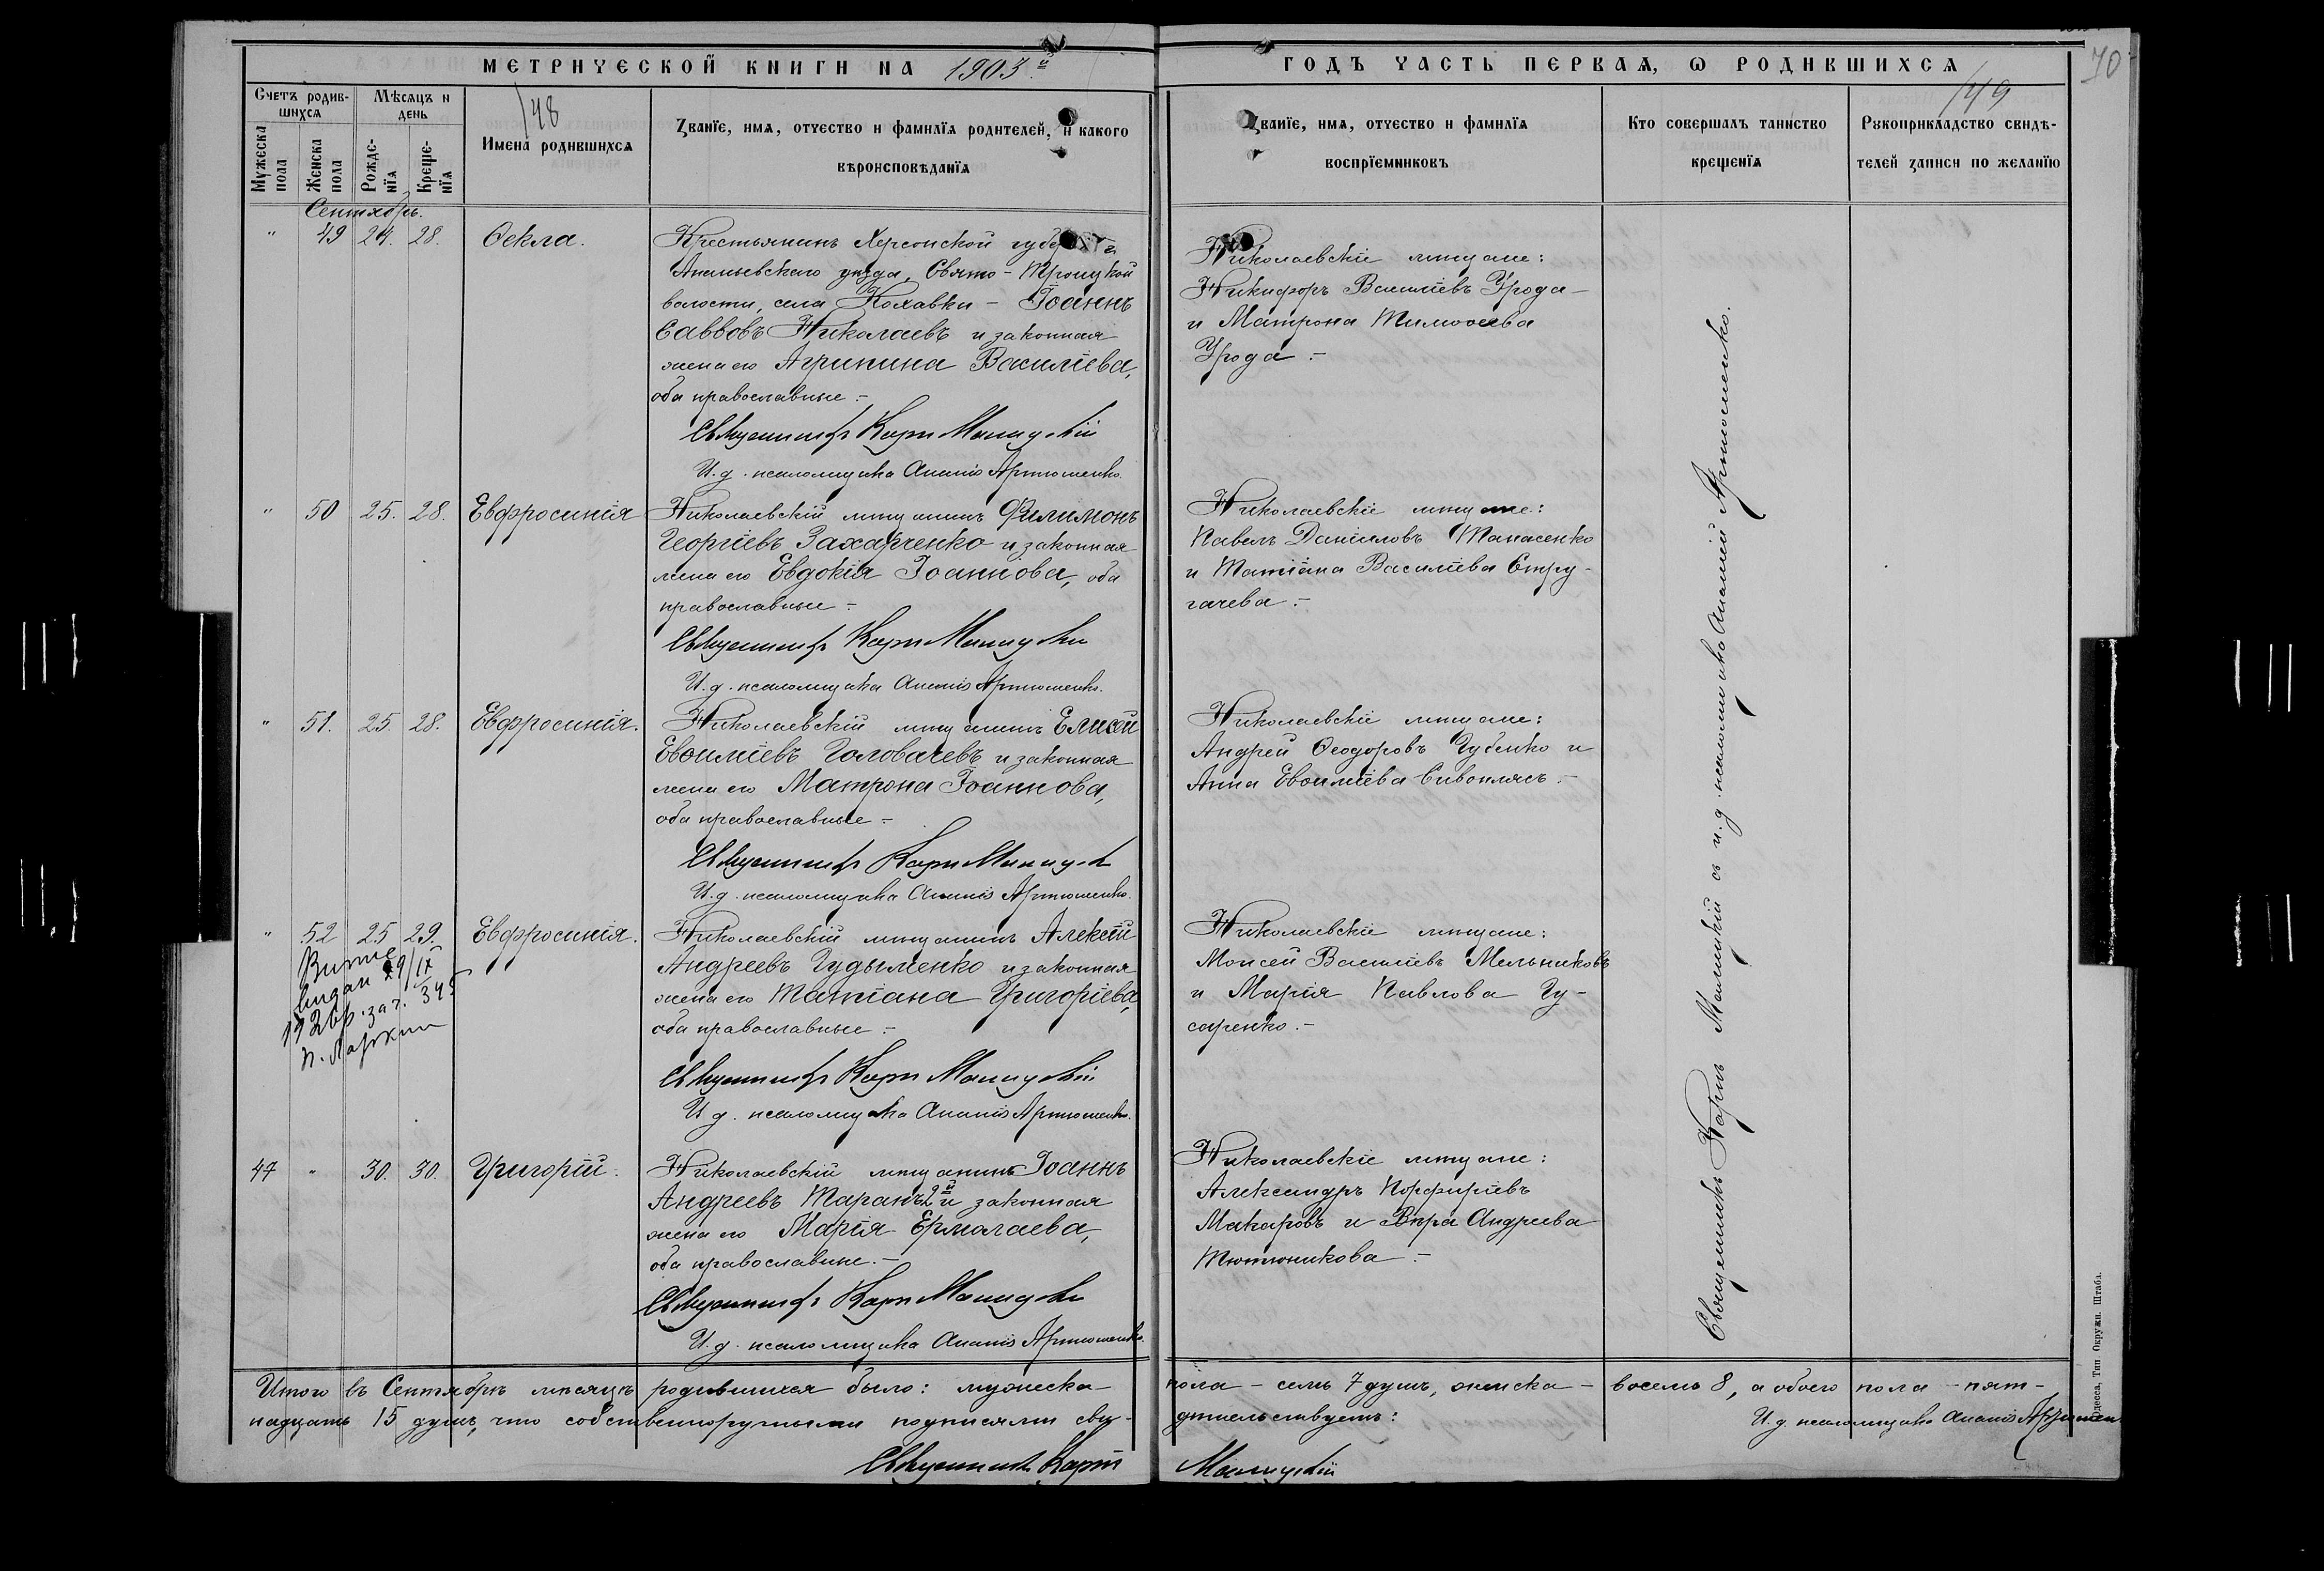 МЕТРИЧЕСКОЙ КНИГИ НА 1903й
ГОДЪ ЧАСТЬ ПЕРВАѦ, Ѡ РОДИВШИХСѦ
70
148
149
Счетъ родив-
шихсѧ
Мѣсѧцъ и
день
Мужеска
пола
Женска
пола
Рожде-
нїѧ
Креще-
нїѧ
Имена родившихсѧ
Званїе, имѧ, отчество и фамилїѧ родителей, и какого
вѣроисповѣданїѧ
Званїе, имѧ, отчество и фамилїѧ
воспрїемниковъ
Кто совершалъ таинство
крещенїѧ
Рукоприкладство свидѣ-
телей записи по желанїю
Сентябрь.
" 49 24. 28. Ѳекла.
Крестьянинъ Херсонской
Ананьевскаго уѣзда, Свято-Троицкой
волости, села – Іоаннъ
Саввовъ Николаевъ и законная
жена его Агрипина Василіева,
оба православные.–
Священникъ Карпъ Малицкій
И. д. псаломщика Ананій Артюшенко.
Николаевскіе мѣщане:
Никифоръ Василіевъ Урода –
и Матрона Тимоѳеева
Урода.–
" 50 25. 28. Евфросинія
Николаевскій мѣщанинъ Филимонъ
Георгіевъ Захарченко и законная
жена его Евдокія Іоаннова, оба
православные –
Священникъ Карпъ Малицкій
И. д. псаломщика Ананій Артюшенко.
Николаевскіе мѣщане:
Павелъ Даніиловъ Танасенко
и Татіана Василіева Стру-
гачева.–
" 51. 25. 28. Евфросинія.
Николаевскій мѣщанинъ Елисей
Евѳиміевъ Головачевъ и законная
жена его Матрона Іоаннова,
оба православные –
Священникъ Карпъ Малицкій
И. д. псаломщика Ананій Артюшенко.
Николаевскіе мѣщане:
Андрей Ѳеодоровъ Губенко и
Анна Евѳиміева Сивоплясъ.–
" 52 25 29. Евфросинія.
29/IX
192 р. за г. 345
Николаевскій мѣщанинъ Алексѣй
Андреевъ Гудыменко и законная
жена его Татіана Григоріева,
оба православные –
Священникъ Карпъ Малицкій
И. д. псаломщика Ананій Артюшенко.
Николаевскіе мѣщане:
Моисей Василіевъ Мельниковъ
и Марія Павлова Гу-
саренко.–
47 " 30. 30. Григорій.
Николаевскій мѣщанинъ Іоаннъ
Андреевъ Таранъ 2й и законная
жена его Марія Ермолаева,
оба православные.–
Священникъ Карпъ Малицкій
И. д. псаломщика Ананій Артюшенко.
Николаевскіе мѣщане:
Александръ Порфиріевъ
Макаровъ и Вѣра Андреева
Тютюникова –
Священникъ Карпъ Малицкій съ и. д. псаломщика Ананіей Артюшенко.
Итого въ Сентябрѣ мѣсяцѣ родившихся было: мужеска – пола – семь 7 душъ, женска – восемь 8, а обоего пола – пят-
надцать 15 душъ, что собственноручными подписями сви-дѣтельствуемъ:
И. д. псаломщика Ананій Артюшен
Священникъ Карпъ Малицкій
Одесса, Тип. Окружн. Штаба.